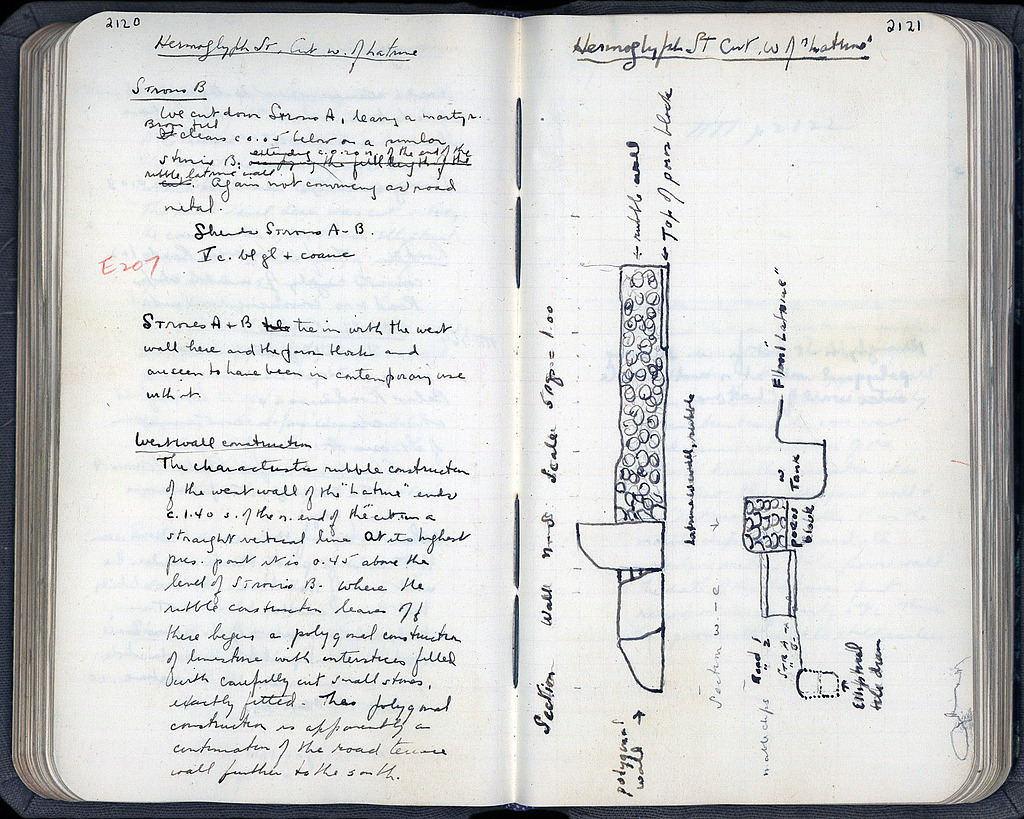 2120
Hermoglyph St. Cut w. of Latrine
Strosis B
We cut down Strosis A, leaving a martyr.
c 0.05 below on a similar
strosis B: extending c. 0.20 n. of the end of the
rubble latrine wall
Again not convincing as road
metal.
Sherds Strosis A-B.
V c. bl gl + coarse
E207
Strosis A + B tie in with the west
wall here and the poros block and
are seen to have been in contemporary use
with it
West wall construction
The characteristic rubble construction
of the west wall of the "Latrine" ends
c. 1.40 s. of the n. end of the cut in a
straight vertical line. At its highest
pres. point it is 0.45 above the
level of Strosis B. Where the
rubble construction leaves off
there begins a polygonal construction
of limestone with interstices filled
with carefully cut small stones,
exactly fitted. This polygonal
construction is apparently a
continuation of the road terrace
wall further to the south.
2121
Hermoglyph St Cut, w of "Latrine"
Section Wall n-s Scale 5 sqs = 1.00
polygonal wall →
← rubble wall
← Top of poros block
Latrine w wall, rubble
Section w-e
Fl in "Latrine"
w Tank
poros block
Road 1
" 2
Str A
" B
marble chips
Elliptical tile drain